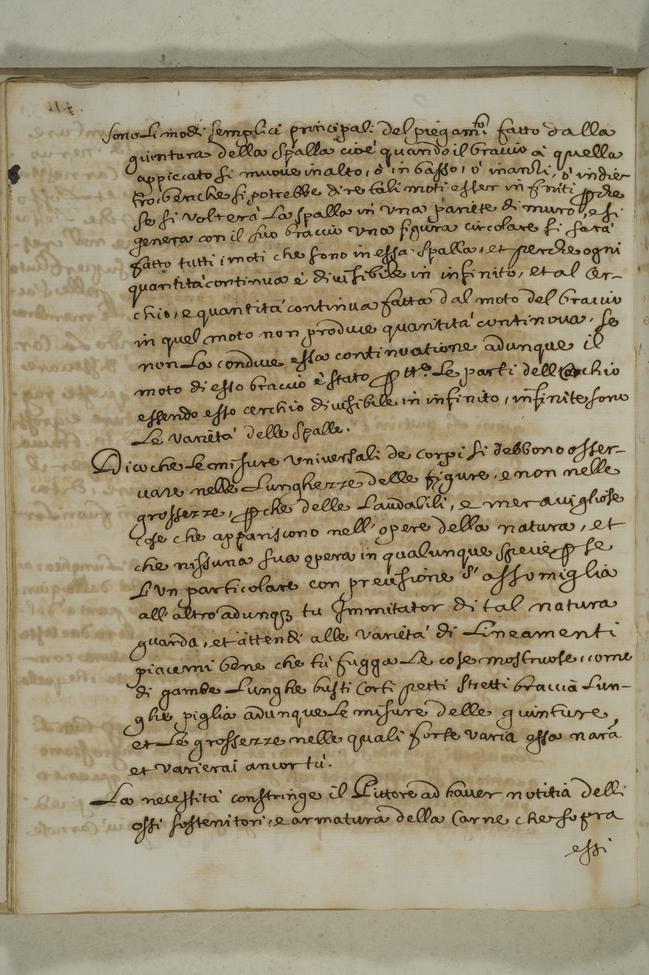 sono li modi semplici principali del piegam.to fatto dalla
giuntura della spalla cioè quando il braccio à quella
appiccato si muove in alto, ò in basso, ò inanzi, ò indie-
tro, benche si potrebbe dire tali moti esser infiniti perche
se si volterà la spalla in una pariete di muro, e si
genera con il suo braccio una figura circolare si sarà
fatto tutti i moti che sono in essa spalla, et perche ogni
quantità continua è divisibile in infinito, et al cer-
chio, e quantità continua fatta dal moto del braccio
in quel moto non produce quantità continova, se
non la conduce essa continuatione adunque il
moto di esso braccio è stato p tte le parti dell cerchio
essendo esso cerchio divisibile in infinito, infinite sono
le varietà delle spalle.
Dico che le misure universali de corpi si debbono osser-
vare nelle lunghezze delle figure, e non nelle
grossezze, perche delle laudabili, e meravigliose
cose che appariscono nell'opere della natura, et
che nissuna sua opera in qualunque specie p se
l'un particolare con precisione s'assomiglia
all'altro adunq; tu Immitator di tal natura
guarda, et attendi alle varietà di lineamenti
piacemi bene che tù fugga le cose mostruose, come
di gambe lunghe busti corti petti stretti braccia lun-
ghe, piglia adunque le misure delle giunture,
et le grossezze nelle quali forte varia essa nara
et varierai ancor tù.
La necessità constringe il Pittore ad haver notitia delli
ossi sostenitori, e armatura della carne che sopra
essi